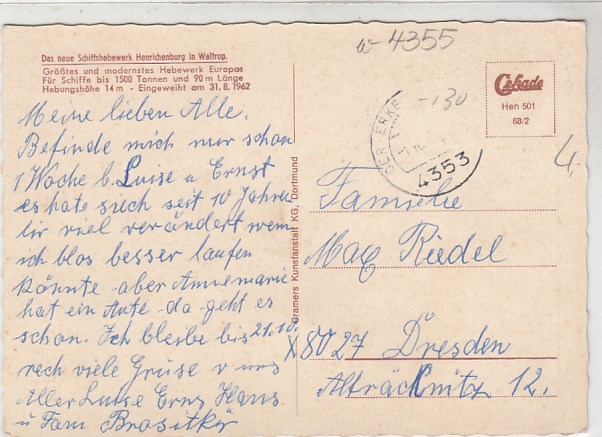 w 4355
Das neue Schiffshebewerk Henrichenburg in Waltrop.
Größtes und modernstes Hebewerk Europas
Für Schiffe bis 1500 Tonnen und 90 m Länge
Hebungshöhe 14 m - Eingeweiht am 31. 8. 1962
Meine lieben Alle.
Befinde mich nur schon
1 Woche b. Luise u Ernst
es hate sich seit 10 Jahre
hir viel verändert wen
ich blos besser laufen
könnte aber Annemarie
hat ein Auto da geht es
schon. Ich bleibe bis 21.10.
rech viele Grüse v uns
Aller Luise Erns Hans
u Fam
Cramers Kunstanstalt KG, Dortmund
Cekade
Hen 501
68/2
-130
OER-ERKE
4353
4.
Familie
Max Riedel
X8027 Dresden
Alträcknitz 12.